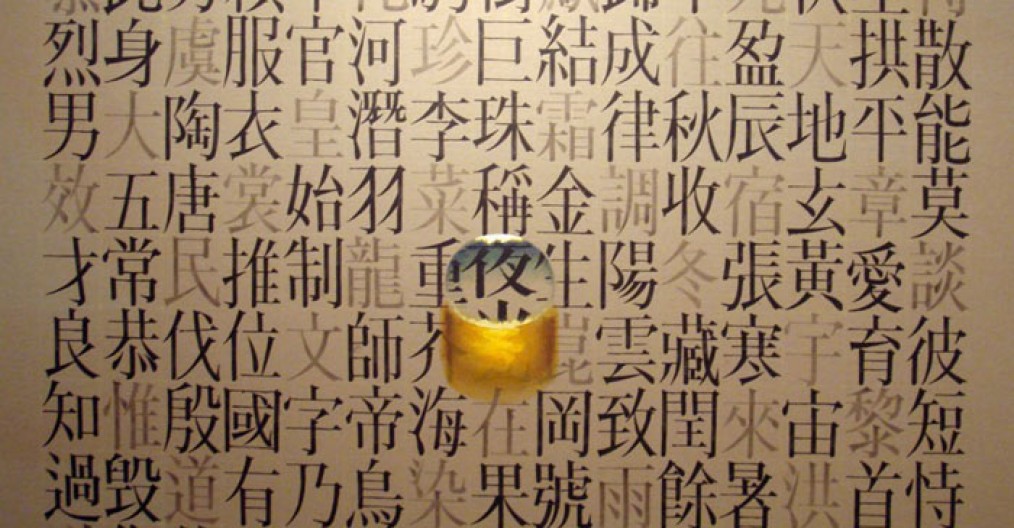 散能莫談彼短恃
拱平章愛育黎首
天地玄黃宇宙洪
盈辰宿張寒來暑
往秋收冬藏閏餘
成律調陽雲致雨
結霜金生崑岡號
巨珠稱夜在果
珍李菜重海染
河潛羽龍師帝鳥
官皇始制文字乃
服衣裳推位國有
虞陶唐民伐殷道
身大五常恭惟毀
烈男效才良知過